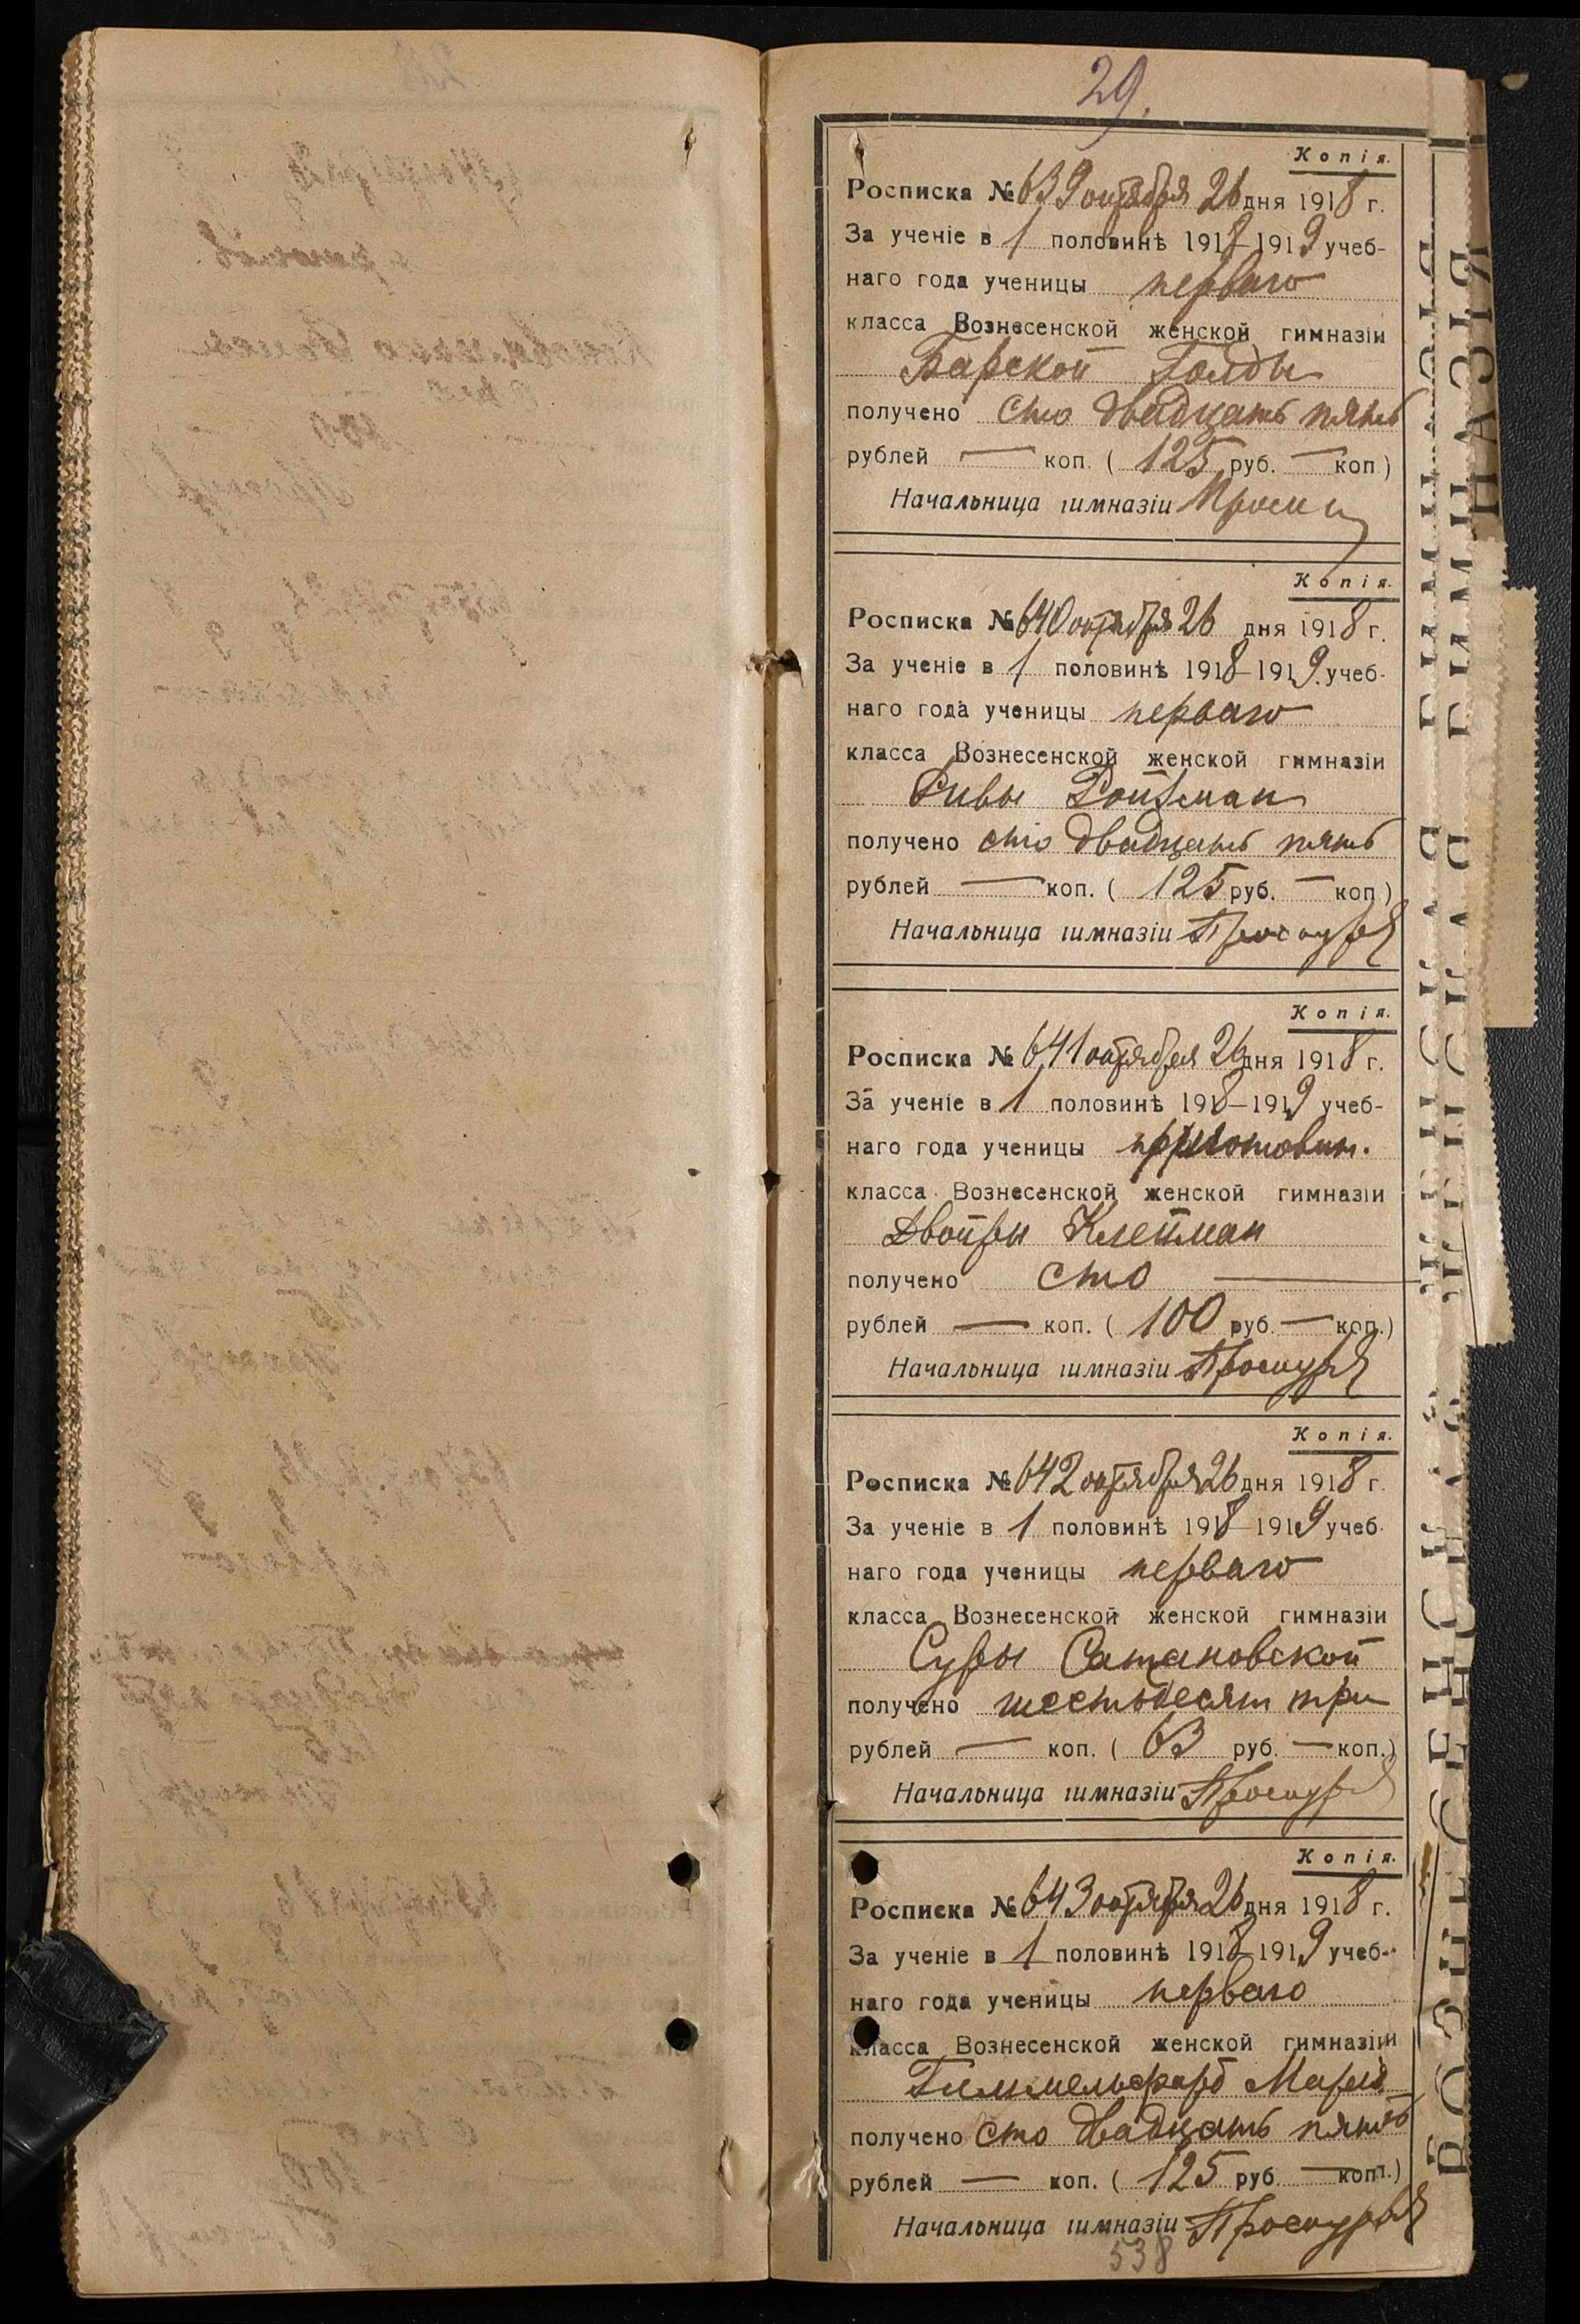 29.
Копія.
Росписка № 639 октября 26 дня 1918 г.
За ученіе в 1 половинѣ 1918-1919 учеб-
наго года ученицы перваго
класса Вознесенской женской гимназіи
Барской Голды
получено сто двадцать пять
рублей — коп. ( 125 руб. — коп )
Начальница гимназіи
Копія.
Росписка № 640 октября 26 дня 1918 г.
За ученіе в 1 половинѣ 1918-1919 учеб-
наго года ученицы перваго
класса Вознесенской женской гимназіи
Ривы Ройтман
получено сто двадцать пять
рублей — коп. ( 125 руб. — коп )
Начальница гимназіи
Копія.
Росписка № 641 октября 26 дня 1918 г.
За ученіе в 1 половинѣ 1918—1919 учеб-
наго года ученицы приготовит.
класса Вознесенской женской гимназіи
Двойры Клейман
получено сто —
рублей — коп. ( 100 руб. — коп.)
Начальница гимназіи
Копія.
Росписка № 642 октября 26 дня 1918 г.
За ученіе в 1 половинѣ 1918—1919 учеб-
наго года ученицы перваго
класса Вознесенской женской гимназіи
Суры Сатановской
получено шестьдесят три
рублей — коп. ( 63 руб. — коп.)
Начальница гимназіи
Копія.
Росписка № 643 октября 26 дня 1918 г.
За ученіе в 1 половинѣ 1918-1919 учеб-
наго года ученицы перваго
класса Вознесенской женской гимназіи
Гиммельфарб Марія
получено сто двадцать пять
рублей — коп. ( 125 руб. — коп.)
Начальница гимназіи
538